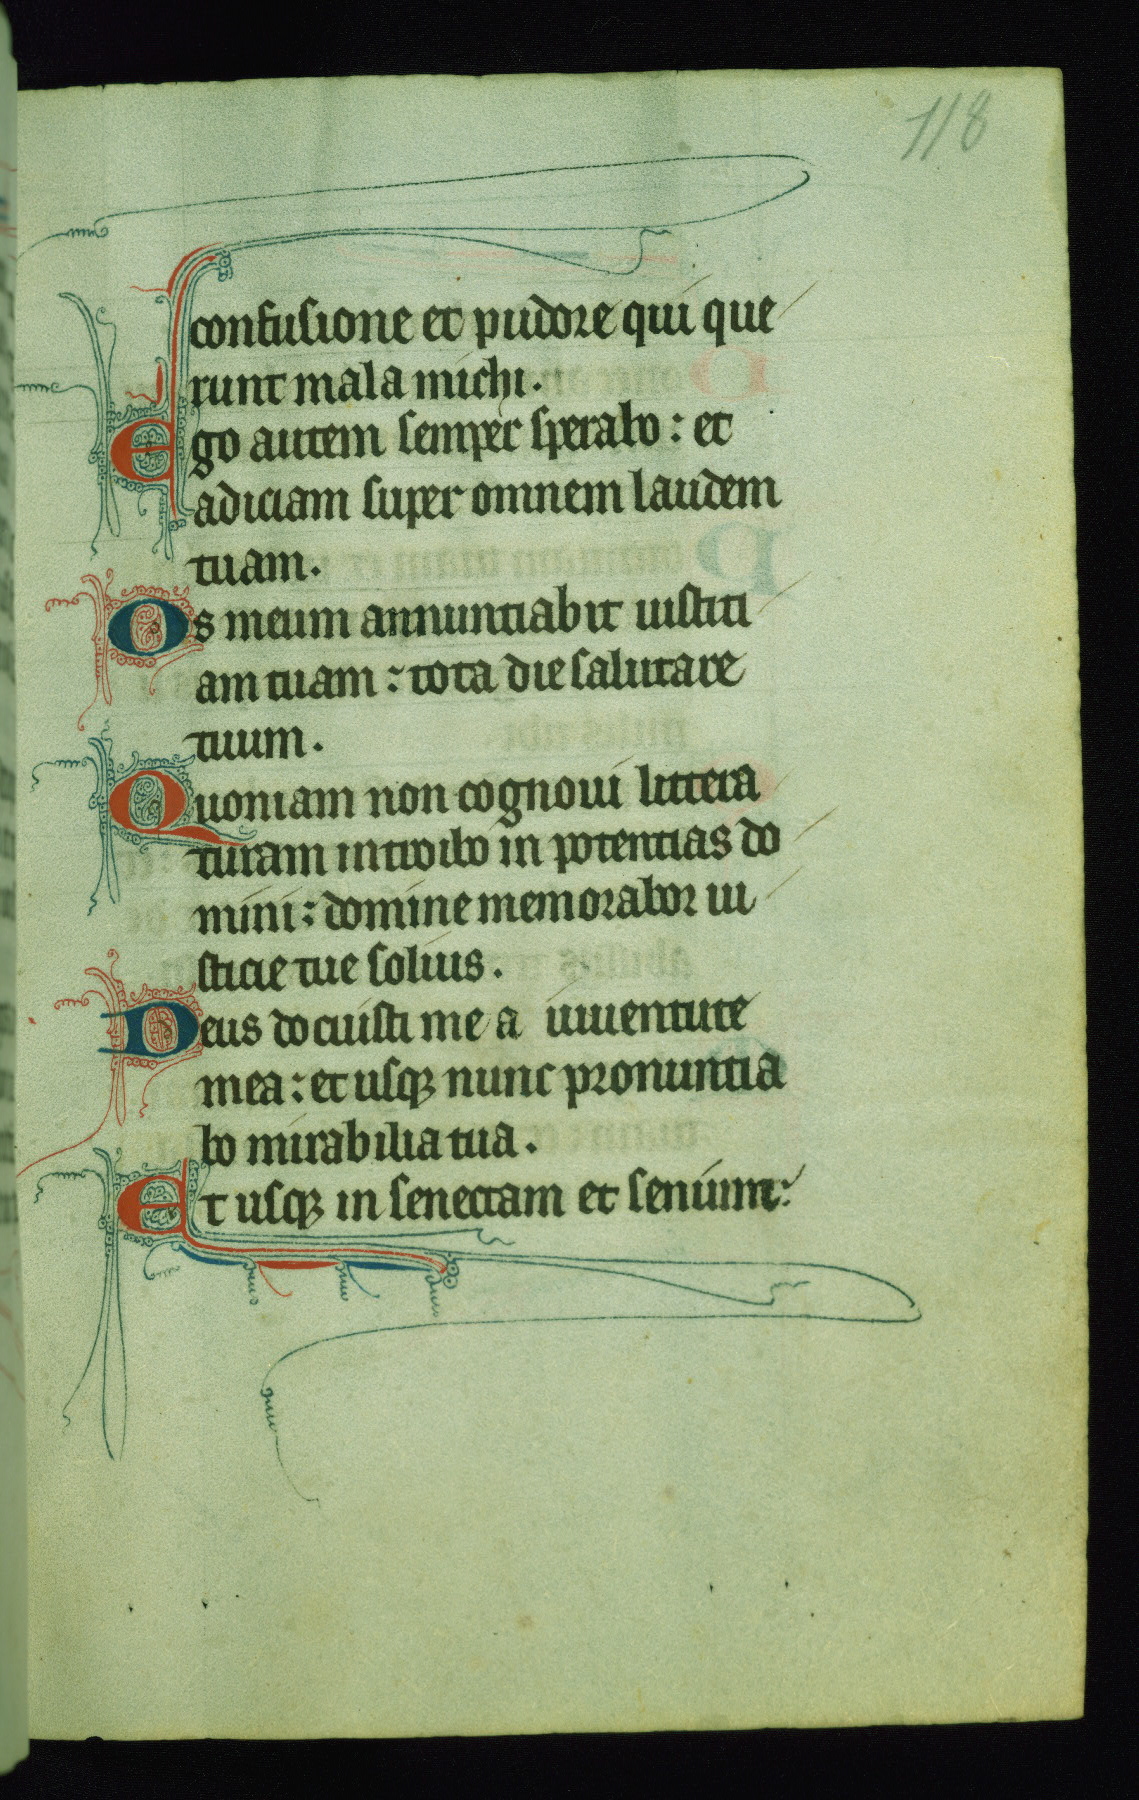 118
confusione et pudore qui que
runt mala michi.
Ego autem semper sperabo: et
adiciam super omnem laudem
tuam.
Os meum annuntiabit iusticі
am tuam: tota die salutare
tuum.
Quoniam non cognoui littera
turam introibo in potentias do
mini: domine memorabor iu
sticie tue solius.
Deus docuisti me a iuuentute
mea: et usqꝫ nunc pronuntia
bo mirabilia tua.
Et usqꝫ in senectam et senium: